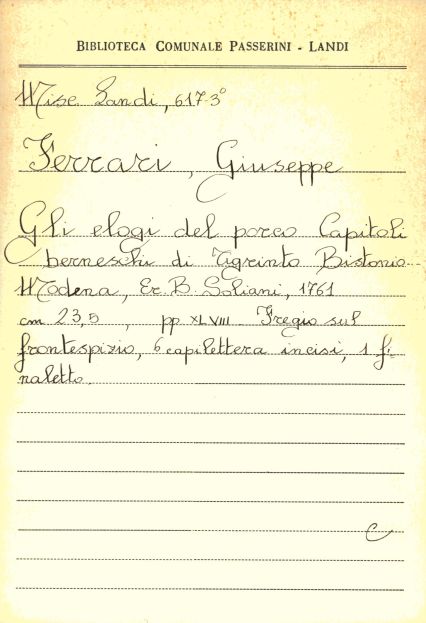 BIBLIOTECA COMUNALE PASSERINI - LANDI
Misc. Landi, 617-3°
Ferrari, Giuseppe
Gli elogi del porco Capitoli
berneschi di Tigrinto Bistonio
Modena, Er. B. Soliani, 1761
cm 23,5, pp XLVIII. Fregio sul
frontespizio, 6 capilettera incisi, 1 fi-
naletto.
C